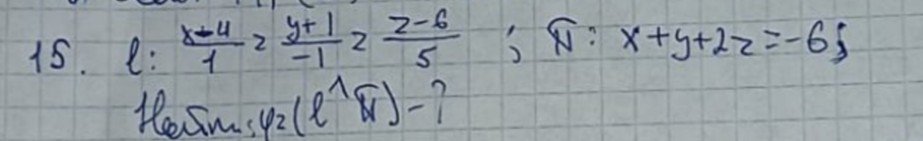 15. l: x-4/1 = y+1/-1 = z-6/5 ; π: x+y+2z=-6;
Найти: φ=(l^π)-?